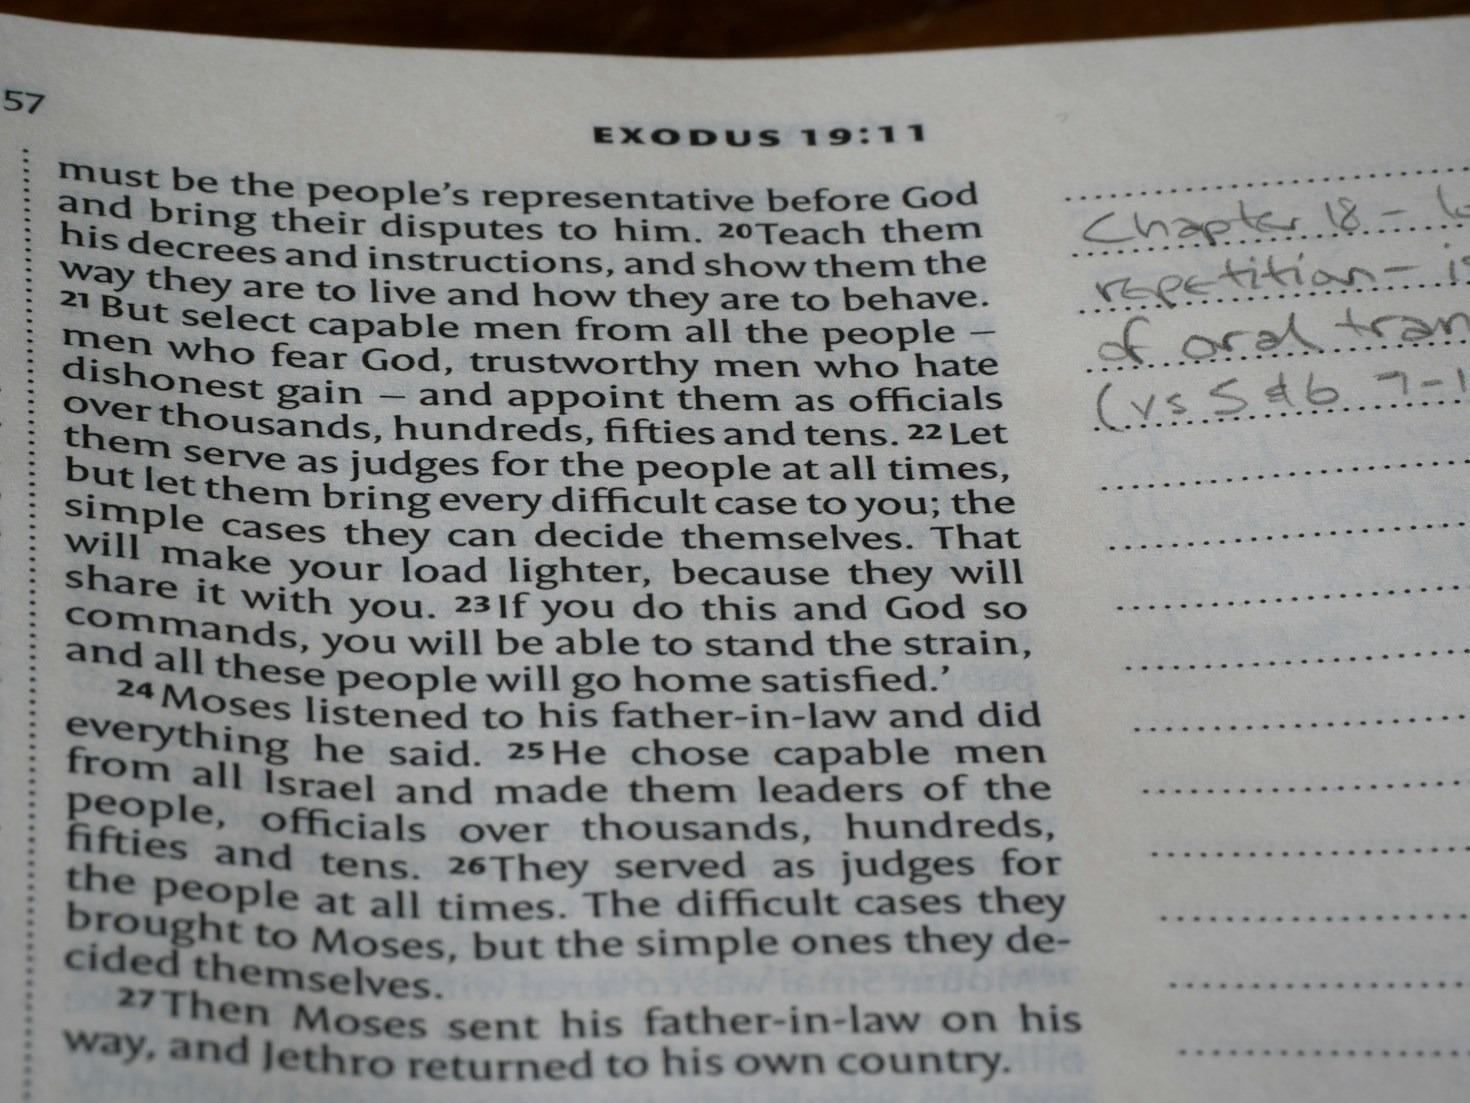 57
EXODUS 19:11
must be the people's representative before God
and bring their disputes to him. 20 Teach them
his decrees and instructions, and show them the
way they are to live and how they are to behave.
21 But select capable men from all the people –
men who fear God, trustworthy men who hate
dishonest gain – and appoint them as officials
over thousands, hundreds, fifties and tens. 22 Let
them serve as judges for the people at all times,
but let them bring every difficult case to you; the
simple cases they can decide themselves. That
will make your load lighter, because they will
share it with you. 23 If you do this and God so
commands, you will be able to stand the strain,
and all these people will go home satisfied.'
24 Moses listened to his father-in-law and did
everything he said. 25 He chose capable men
from all Israel and made them leaders of the
people, officials over thousands, hundreds,
fifties and tens. 26 They served as judges for
the people at all times. The difficult cases they
brought to Moses, but the simple ones they de-
cided themselves.
27 Then Moses sent his father-in-law on his
way, and Jethro returned to his own country.
Chapter 18 –
repetition –
of oral
(vs 5 & 6